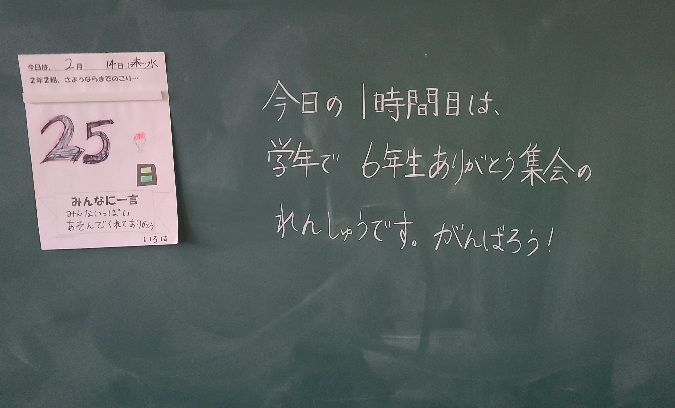 今日は、2月14日 水
2年2組、さようならまでのこり…
25
日
みんなに一言
みんないっぱい
あそんでくれてありがとう
今日の1時間目は、
学年で 6年生ありがとう集会の
れんしゅうです。がんばろう!